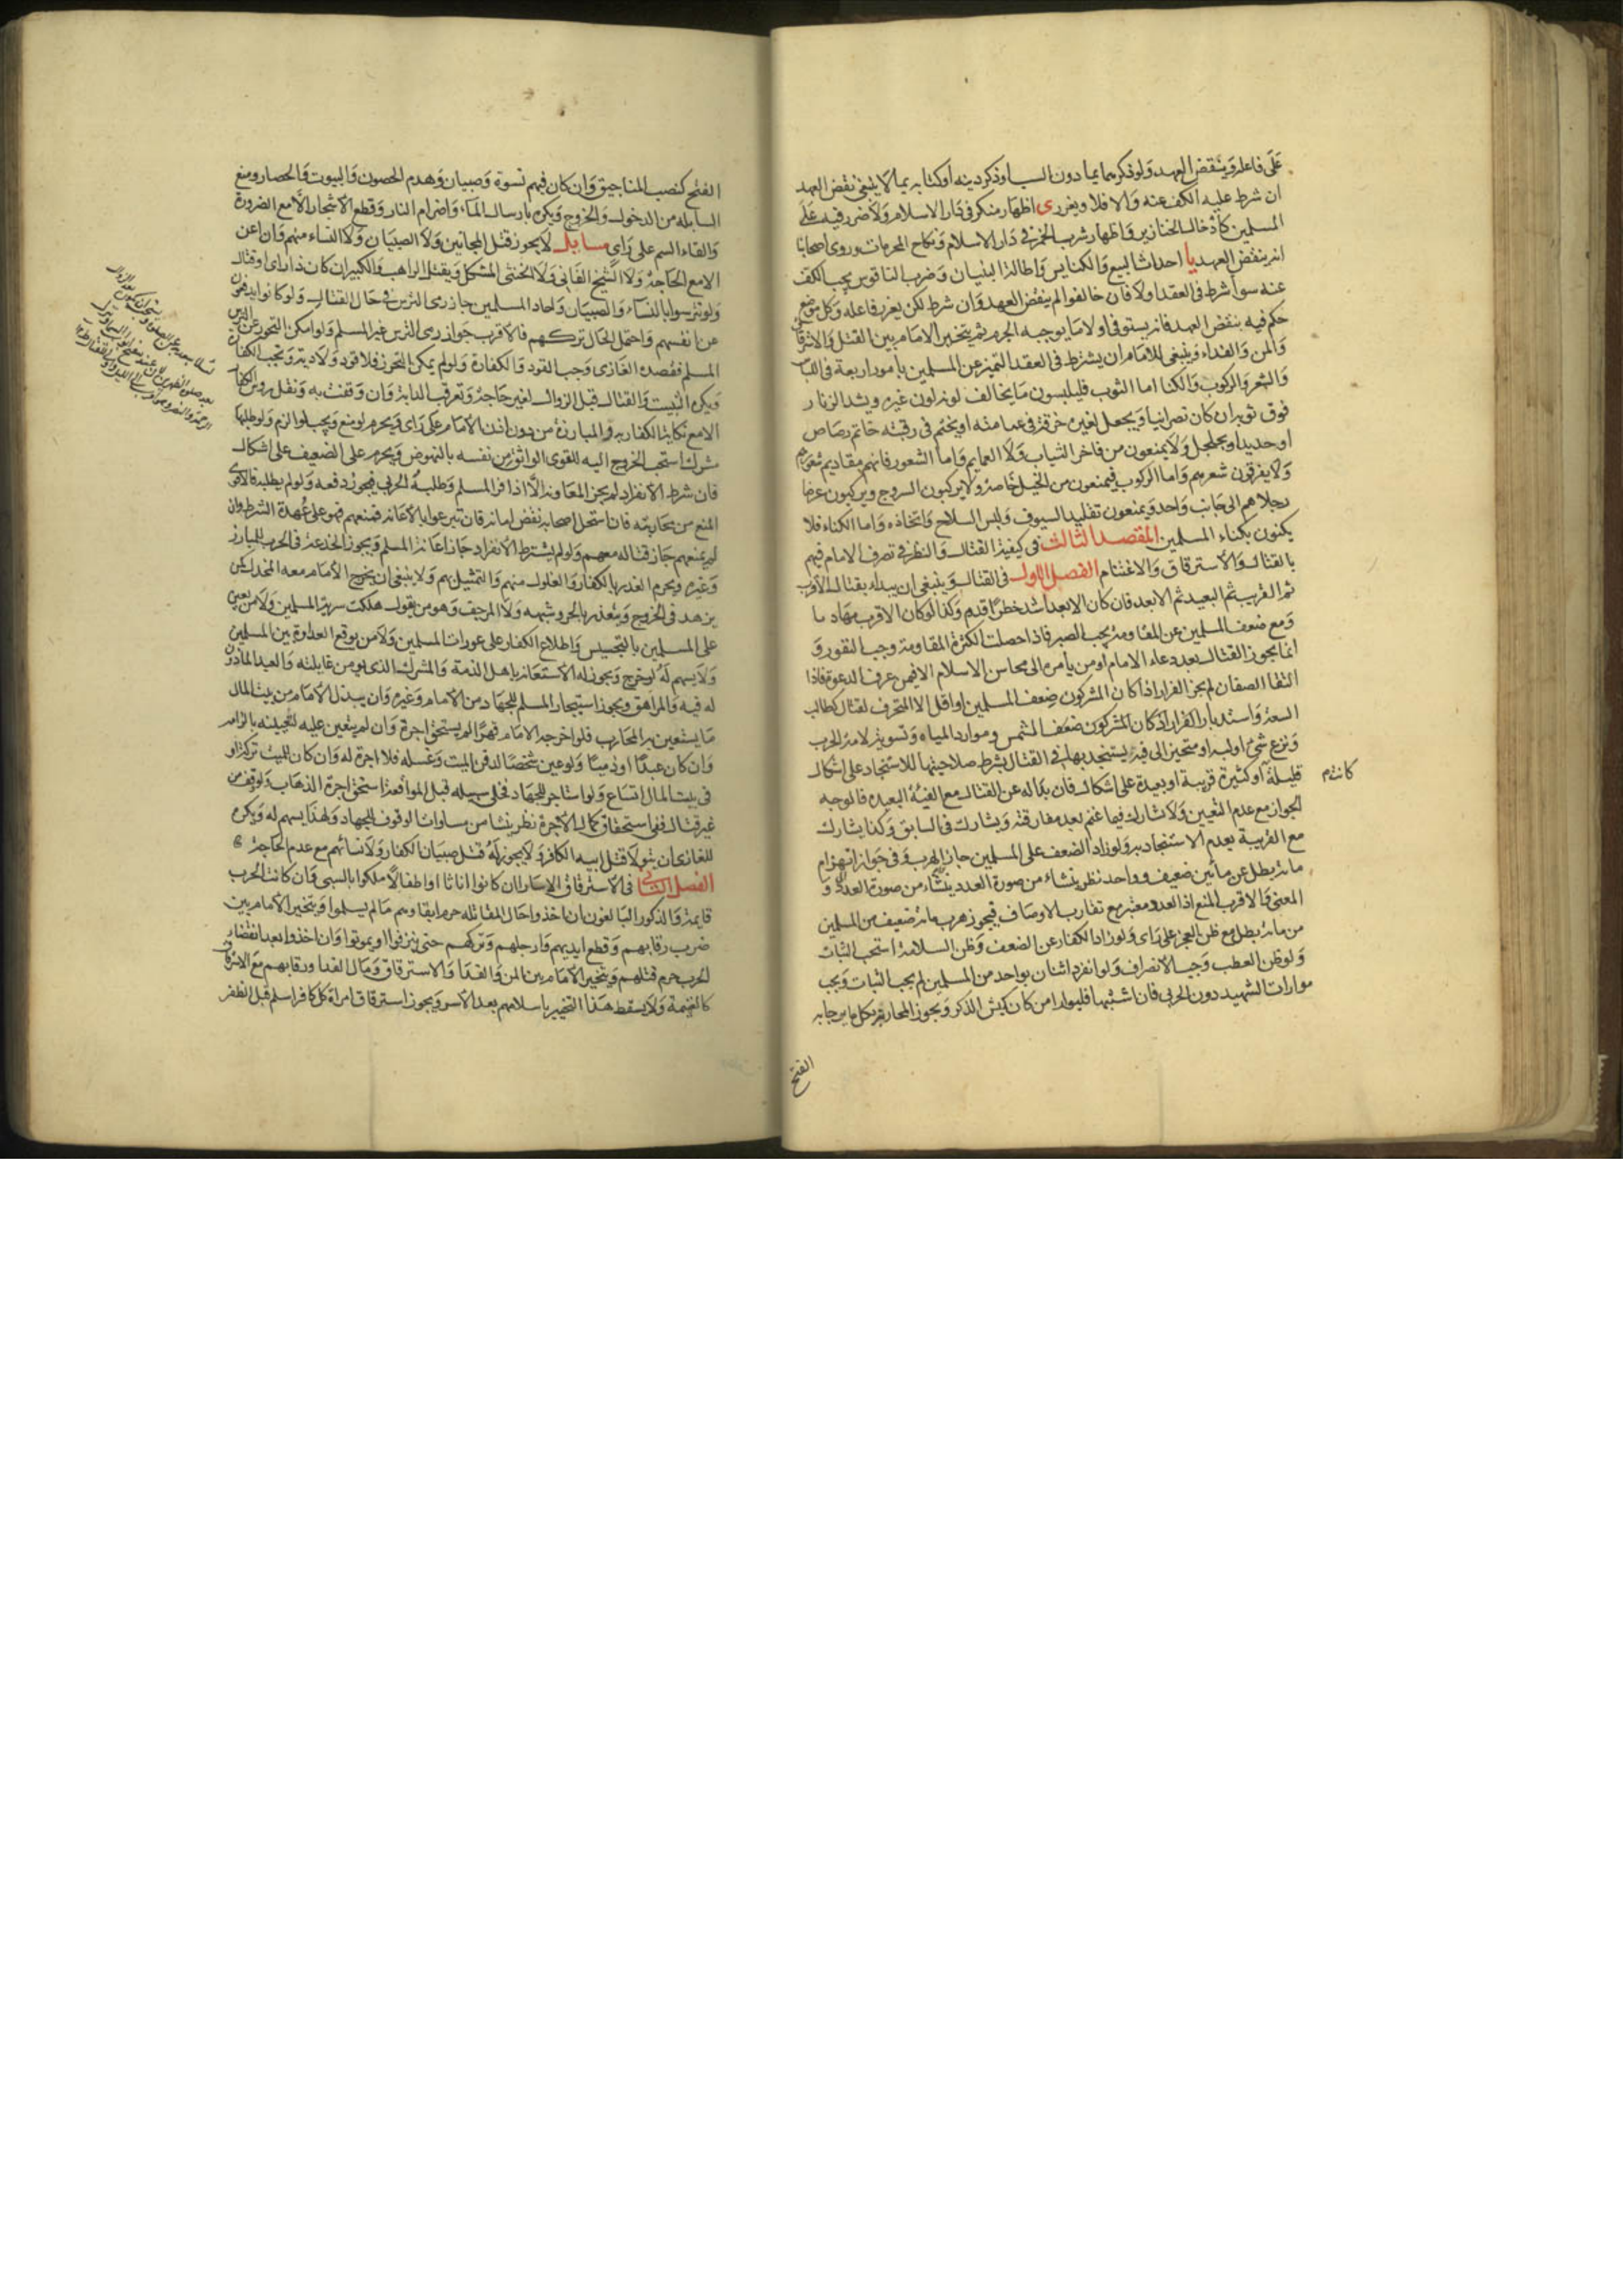 على فاعله وينقض العهد ولو ذكرهما بما دون السب او ذكر دينه او كتابه بما لا ينبغي نقض العهد
ان شرط عليه الكف عنه والا فلا ويعزر ى اظهار منكر في دار الاسلام ولا ضرر فيه على
المسلمين كادخال الخنازير واظهار شرب الخمر في دار الاسلام ونكاح المحرمات وروى اصحابنا
انه ينقض العهد يا احداث البيع والكنايس واطالة البنيان وضرب الناقوس يجب الكف
عنه سوا شرط في العقد اولا فان خالفوا لم ينقض العهد وان شرط لكن يعزر فاعله وكل موضع
حكم فيه بنقض العهد فانه يستوفى اولا ما يوجبه الجرم ثم يتخير الامام بين القتل والاسترقاق
والمن والفداء وينبغي للامام ان يشترط في العقد التميز عن المسلمين بامور اربعة في اللباس
والشعر والركوب والكنا اما الثوب فليلبسون ما يخالف لونه لون غيره ويشد الزنار
فوق ثوبه ان كان نصرانيا ويجعل لغيره خرقة في عمامته او يختم في رقبته خاتم رصاص
او حديد او جلجل ولا يمنعون من فاخر الثياب ولا العمايم واما الشعور فانهم مقاديم شعورهم
ولا يفرقون شعرهم واما الركوب فيمنعون من الخيل خاصة ولا يركبون السروج ويركبون عرضا
رجلاهم الى جانب واحد ويمنعون تقليد السيوف ولبس السلاح واتخاذه واما الكناء فلا
يكنون بكناء المسلمين المقصد الثالث في كيفية القتال والنظر في تصرف الامام فيهم
بالقتال والاسترقاق والاغتنام الفصل الاول في القتال وينبغي ان يبداء بقتال الاقرب
ثم القريب ثم البعيد ثم الابعد فان كان الابعد اشد خطرا قدم وكذا لو كان الاقرب مهادنا
ومع ضعف المسلمين عن المقاومة يجب الصبر فاذا حصلت الكثرة المقاومة وجب النفور و
انما يجوز القتال بعد دعاء الامام او من يأمره الى محاسن الاسلام الا فيمن عرف الدعوة فاذا
التقا الصفان لم يجز الفرار اذا كان المشركون ضعف المسلمين او اقل الا المتحرف لقتال كطالب
السعة واستدبار القرار اذ كان المشركون ضعف الشمس وموارد المياه وتسوية لامة الحرب
ونزع شئ او لبسه او متحيز الى فية يستنجد بها في القتال بشرط صلاحيتها للاستنجاد على اشكال
قليلة او كثيرة قريبة او بعيدة على اشكال فان بدا له عن القتال مع الفيئة البعيده فالوجه
كانت م
الجواز مع عدم التعيين ولا تشارك فيما غنم بعد مفارقته ويشارك في السابق وكذا يشارك
مع القريبة بعدم الاستنجاد به ولو زاد الضعف على المسلمين جاز الهرب وفي جواز انهزام
مائة بطل عن مأتين ضعيف وواحد نظر ينشاء من صورة العدد ينشاء من صورة العدد و
المعنى والاقرب المنع اذ العدد معتبر مع تقارب الاوصاف فيجوز هرب مائة ضعيف من المسلمين
من مائة بطل مع ظن العجز على راى ولو زاد الكفار عن الضعف وظن السلامة استحب الثبات
ولو ظن العطب وجب الانصراف ولو انفرد اثنان بواحد من المسلمين لم يجب الثبات ويجب
موارات الشهيد دون الحربى فان اشتبها فليوار من كان كيش الذكر ويجوز المحاربة بكل ما يرجا به
الفتح
الفتح كنصب المناجيق وان كان فيهم نسوة وصبيان وهدم الحصون والبيوت والحصار ومنع
السابلة من الدخول والخروج ويكره بارسال الماء واضرام النار وقطع الاشجار الا مع الضرورة
والقاء السم على راى مسايل لا يجوز قتل المجانين ولا الصبيان ولا النساء منهم وان اعن
الا مع الحاجة ولا الشيخ الفاني ولا الخنثى المشكل ويقتل الراهب والكبير ان كان ذا راى او قتال
ولو تترسوا بالنساء والصبيان ولحاد المسلمين جاز رمى الترس في حال القتال ولو كانوا يدفعون
عن انفسهم واحتمل الحال تركهم فالاقرب جواز رمى الترس غير المسلم ولو امكن التحرز عن الترس
المسلم فقصده الغازى وجب القود والكفارة ولو لم يمكن التحرز فلا قود ولا دية وتجب الكفارة
ويكره التبيت والقتال قبل الزوال لغير حاجة وتعرقب الدابة وان وقفت به ونقل روس الكفار
الا مع نكاية الكفار به والمبارزة من دون اذن الامام على راى ويحرم لو منع ويجب لو الزم ولو طلبها
مشرك استحب الخروج اليه للقوى الواثق من نفسه بالنهوض ويحرم على الضعيف على اشكال
فان شرط الانفراد لم يجز المعاونة الا اذا فر المسلم وطلبه الحربى فيجوز دفعه ولو لم يطلبه فالاقوى
المنع من محاربته فان استنجل اصحابه نقض امانه فان تبرعوا بالاعانة فمنعهم فهو على عهدة الشرط وان
لم يمنعهم جاز قتاله معهم ولو لم يشترط الانفراد جاز اعانة المسلم ويجوز الخدعة في الحرب للمبارز
وغيره ويحرم الغدر بالكفار والغلول منهم والتمثيل بهم ولا ينبغي ان يخرج الامام معه المخذل كمن
يزهد في الخروج ويتعذر بالحر وشبهه ولا المرجف وهو من يقول هلكت سرية المسلمين ولا من يعين
على المسلمين بالتجسيس واطلاع الكفار على عورات المسلمين ولا من يوقع العداوة بين المسلمين
ولا يسهم له لو خرج ويجوز له الاستعانة باهل الذمة والمشرك الذى يؤمن غايلته والعبد الماذون
له فيه والمراهق ويجوز استيجار المسلم للجهاد من الامام وغيره وان يبذل الامام من بيت المال
ما يستعين به المحارب فلو اخرجه الامام قهرا لم يستحق اجرة وان لم يتعين عليه لتعيينه بالزامه
وان كان عبدا او ذميا ولو عين شخصا لدفن الميت وغسله فلا اجرة له وان كان للميت تركة او
في بيت المال اتساع ولو استاجر للجهاد فخلى سبيله قبل الموافعة استحق اجرة الذهاب ولو وقف من
غير قتال ففى استحقاق كمال الاجرة نظر ينشا من مساواة الوقوف للجهاد ولهذا يسهم له ويكره
للغازى ان يتولا قتل ابيه الكافر ولا يجوز له قتل صبيان الكفار ولا نسائهم مع عدم الحاجة
الفصل الثاني في الاسترقاق الاسارا ان كانوا اناثا او اطفالا ملكوا بالسبى وان كانت الحرب
قايمة والذكور البالغون ان اخذوا حال المقاتلة حرم ابقاوهم ما لم يسلموا ويتخير الامام بين
ضرب رقابهم وقطع ايديهم وارجلهم وتركهم حتى ينزفوا او يموتوا وان اخذوا بعد انقضاء
الحرب حرم قتلهم ويتخير الامام بين المن والفدا والاسترقاق ومال الفدا ورقابهم مع الاسترقاق
كالغنيمة ولا يسقط هذا التخيير باسلامهم بعد الاسر ويجوز استرقاق امراة كل كافر اسلم قبل الظفر